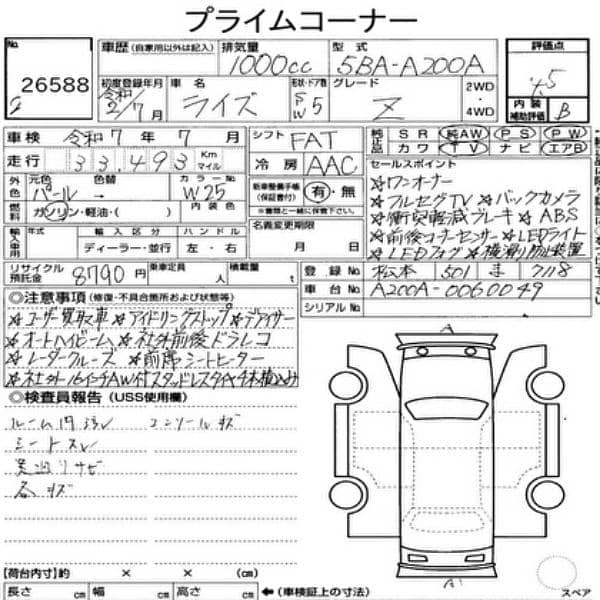 プライムコーナー
No.
26588
車歴 (自家用以外は記入)
排気量
1000cc
型式
5BA-A200A
評価点
4.5
内装補助評価 B
初度登録年月
令和 2/7月
車名
ライズ
形状・ドア数
5W 5
グレード
Z
2WD
・4WD
車検 令和 7年 7月
シフト FAT
純正 SR 純AW PS PW
社外 カワ TV ナビ エアB
走行 33,493 Km マイル
冷房 AAC
セールスポイント
☆ワンオーナー
☆フルセグTV ☆バックカメラ
☆衝突軽減ブレーキ ☆ABS
☆前後コーナーセンサー ☆LEDライト
☆LEDフォグ ☆横滑り防止装置
外色 元色 パール 色替 →
カラーNo. W25
新車整備手帳(保証書付) 有・無
(※書類と一緒に保管下さい。)
燃料 ガソリン・軽油・( )
内装色
名義変更期限
月 日
輸入車用 年式 輸入区分 ハンドル
ディーラー・並行 左・右
リサイクル預託金 8790円
乗車定員 人
積載量 t
登録No. 松本 501 ま 7118
車台No. A200A-0060049
シリアルNo.
◎注意事項 (修復・不具合箇所および状態等)
☆ユーザー買取車 ☆アイドリングストップ ☆デアイサー
☆オートハイビーム ☆社外前後ドラレコ
☆レーダークルーズ ☆前席シートヒーター
☆社外16インチAW付スタッドレスタイヤ4本積込み
◎検査員報告 (USS使用欄)
ルーム内汚れ コンソールキズ
シートスレ
各キズ
【荷台内寸】約 × × (cm)
長さ cm 幅 cm 高さ cm
←(車検証上の寸法)
A
A
スペア